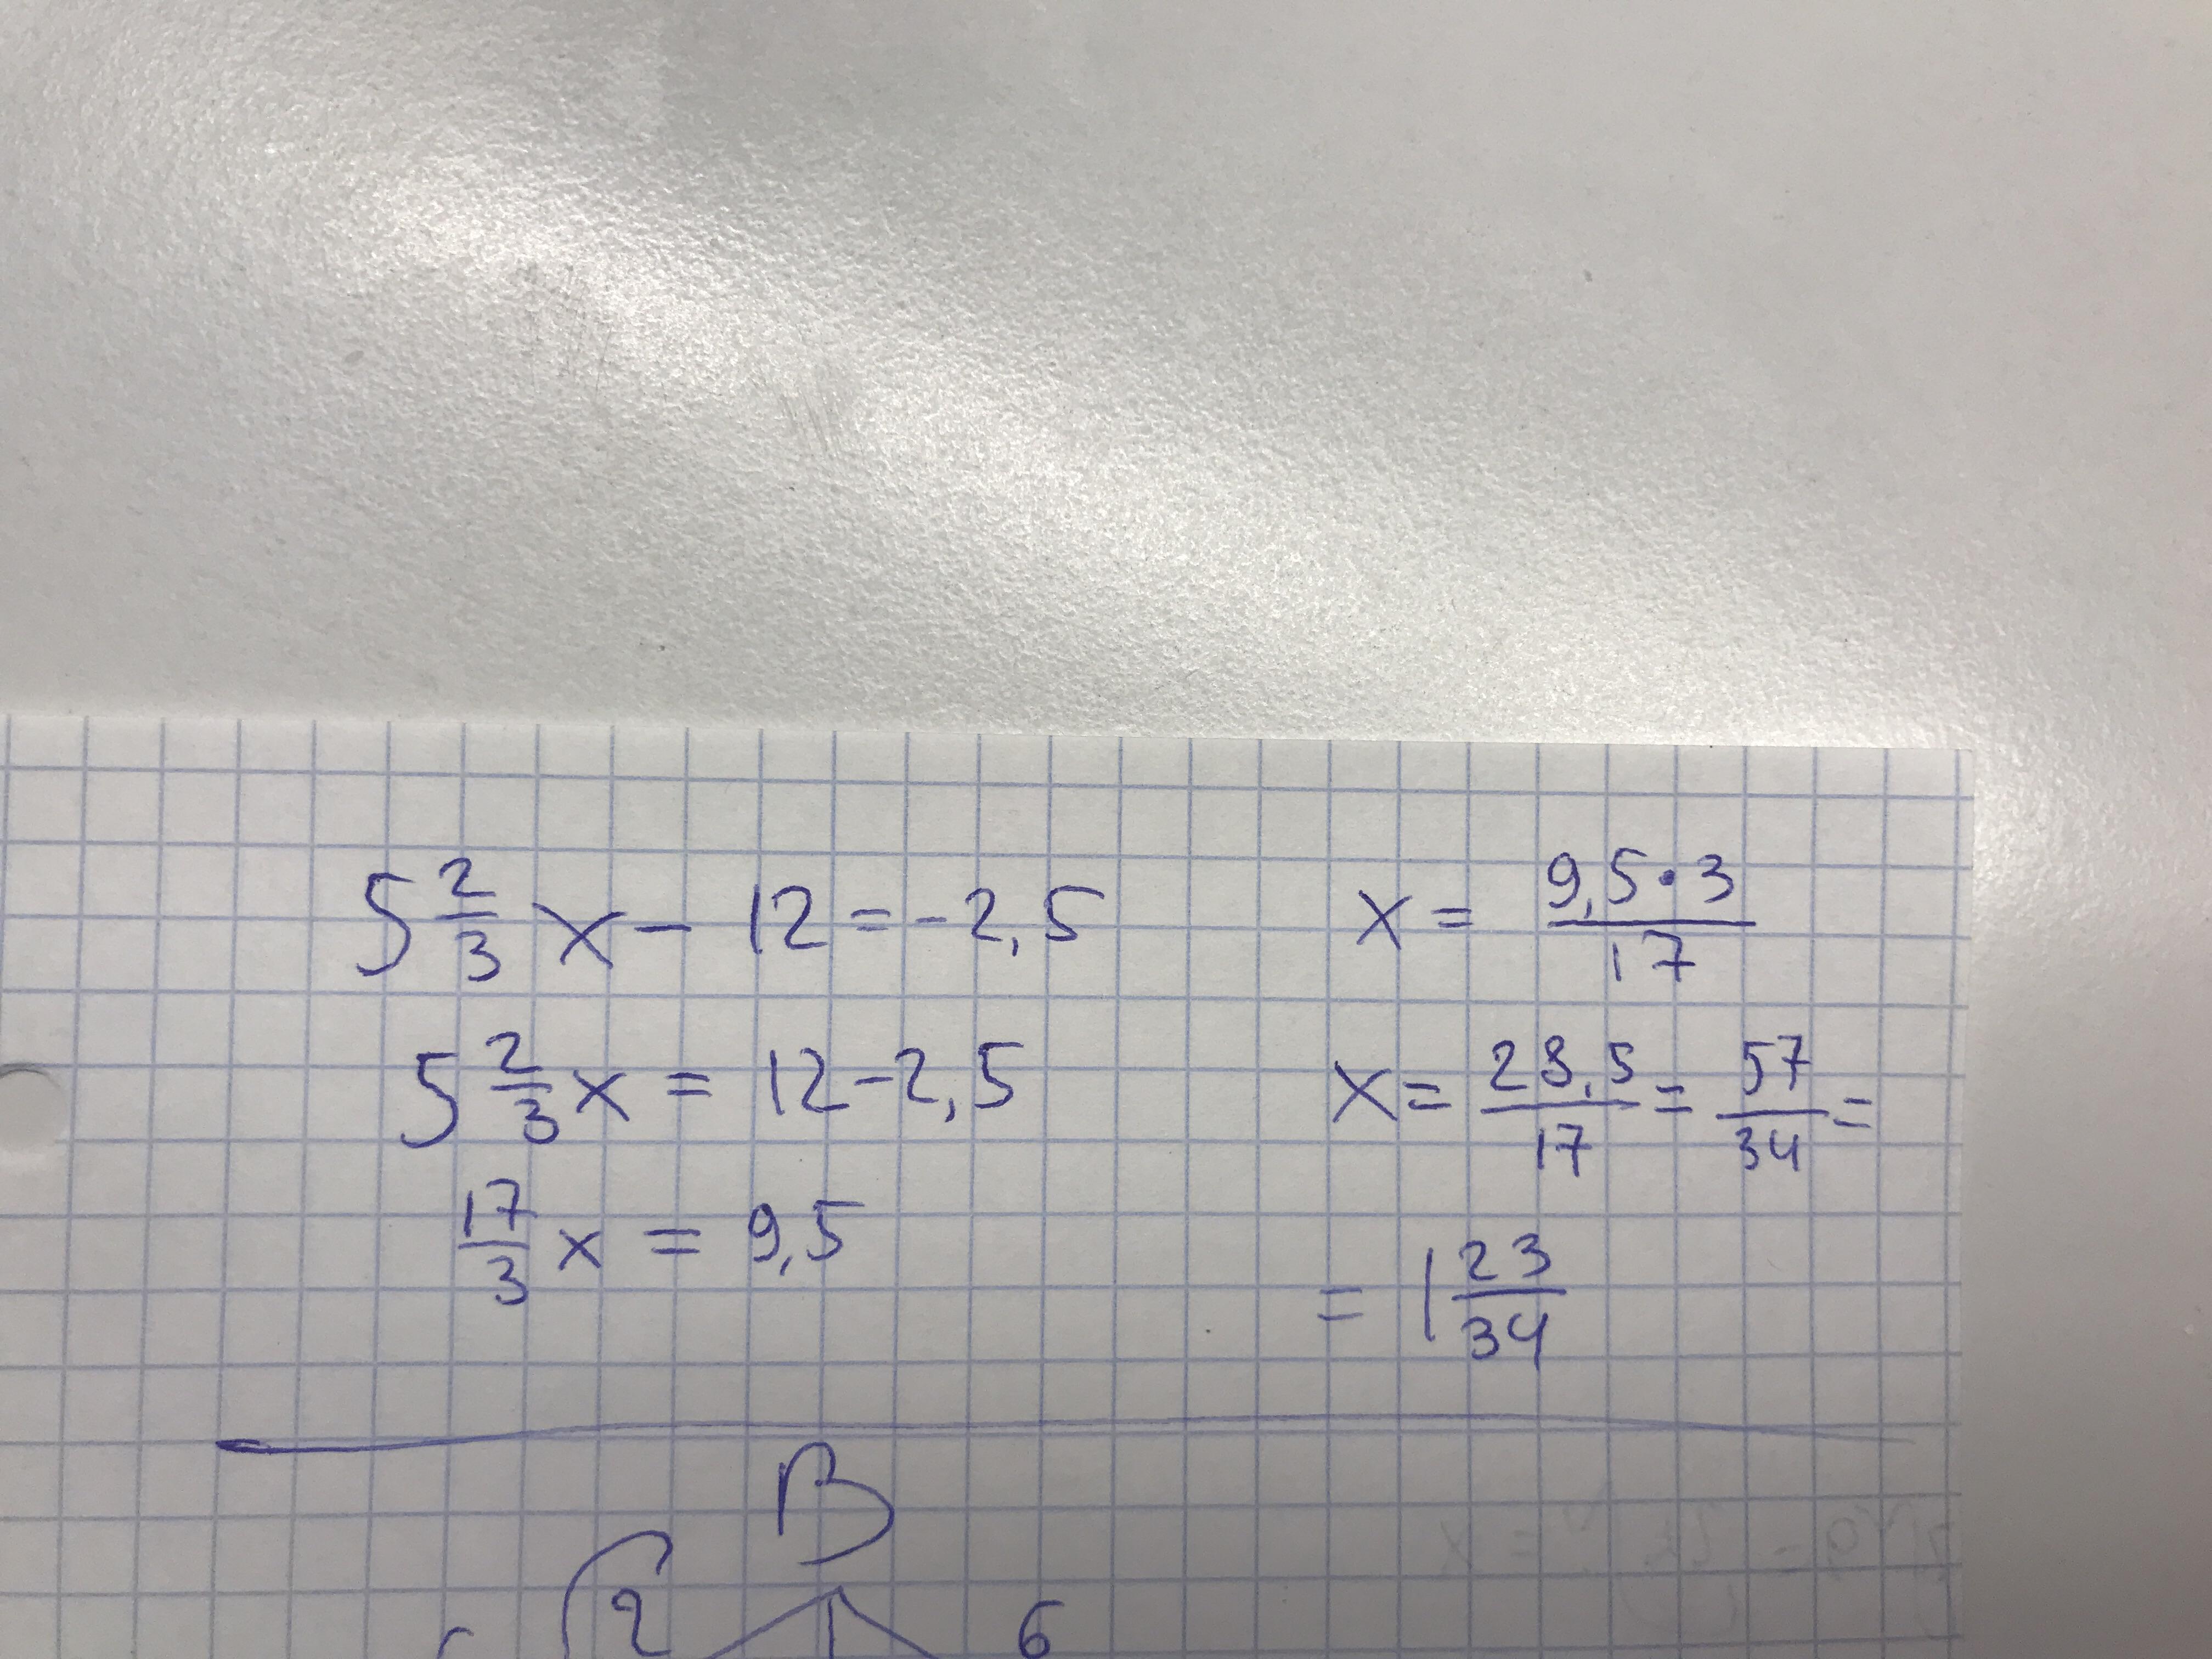 5 2/3 x - 12 = -2,5
5 2/3 x = 12 - 2,5
17/3 x = 9,5
x = 9,5 · 3 / 17
x = 28,5/17 = 57/34 =
= 1 23/34
B
2
6